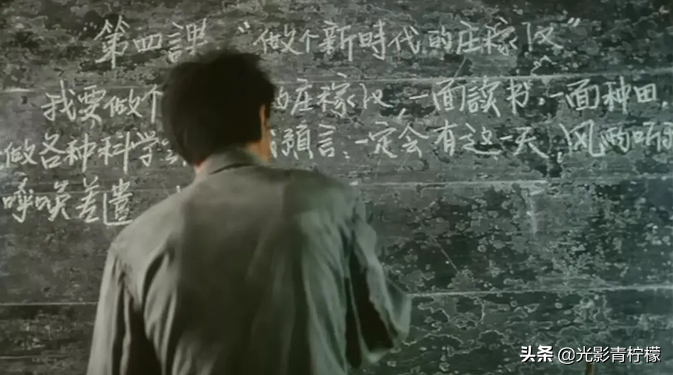 第四課 "做个新時代的庄稼汉"
我要做个 的庄稼汉，一面讀书，一面种田，
做各种科学 預言，一定会有这一天，风雨听
唤差遣
头条 @光影青柠檬